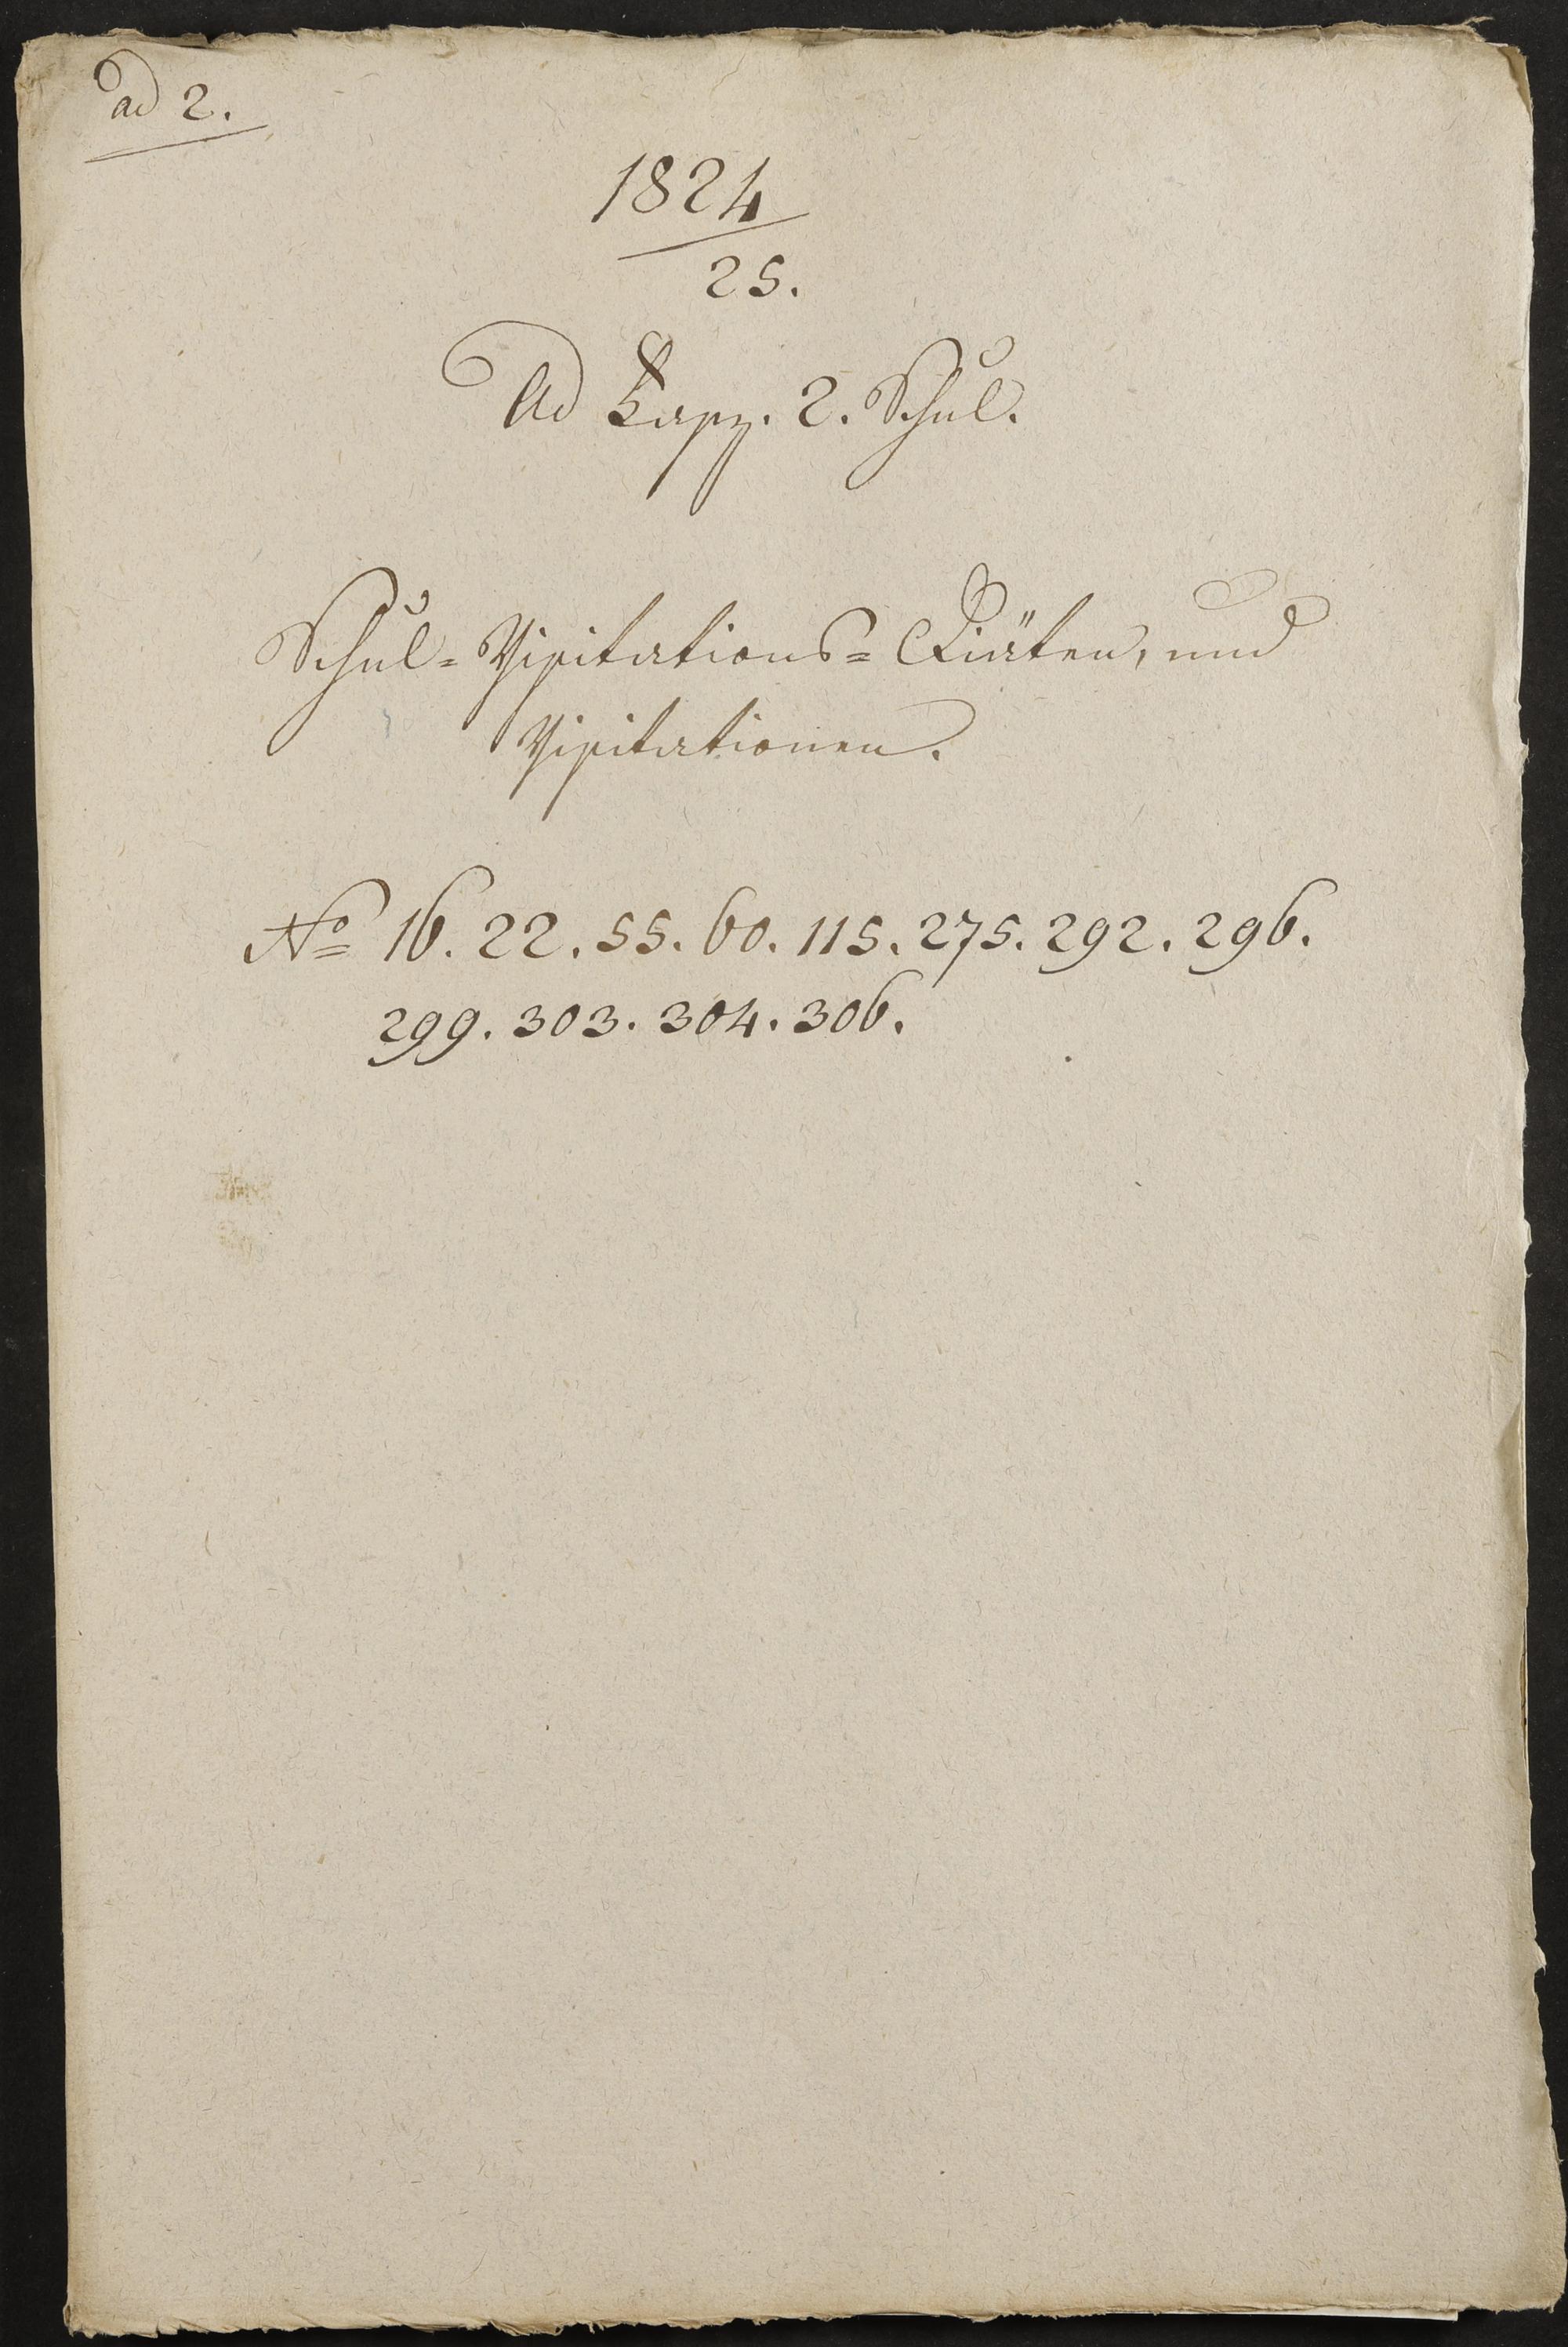 ad 2.
1824
25.
Ad Kapz. 2. Schul.
Schul-Visitations-Diäten, und
Visitationen.
No 16. 22. 55. 60. 115. 275. 292. 296.
299. 303. 304. 306.